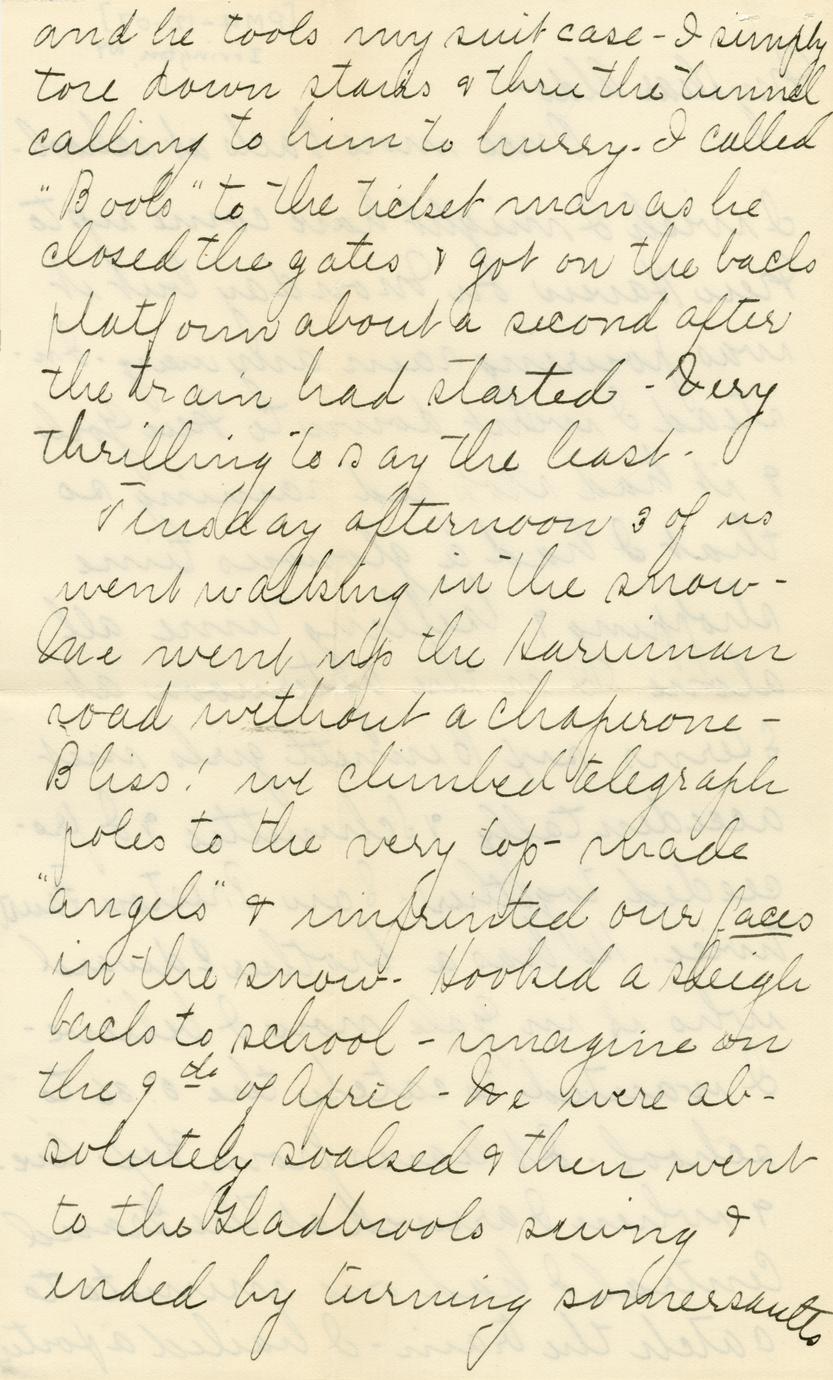 and he took my suit case - I simply
tore down stairs & thru the tunnel
calling to him to hurry. I called
"Book" to the ticket man as he
closed the gates & got on the back
platform about a second after
the train had started - Very
thrilling to say the least.
Tuesday afternoon 3 of us
went walking in the snow -
We went up the Harriman
road without a chaperone -
Bliss! we climbed telegraph
poles to the very top - made
"angels" & imprinted our faces
in the snow. Hooked a sleigh
back to school - imagine on
the 9th of April - We were ab-
solutely soaked & then went
to the Gladbrook swing &
ended by turning somersaults